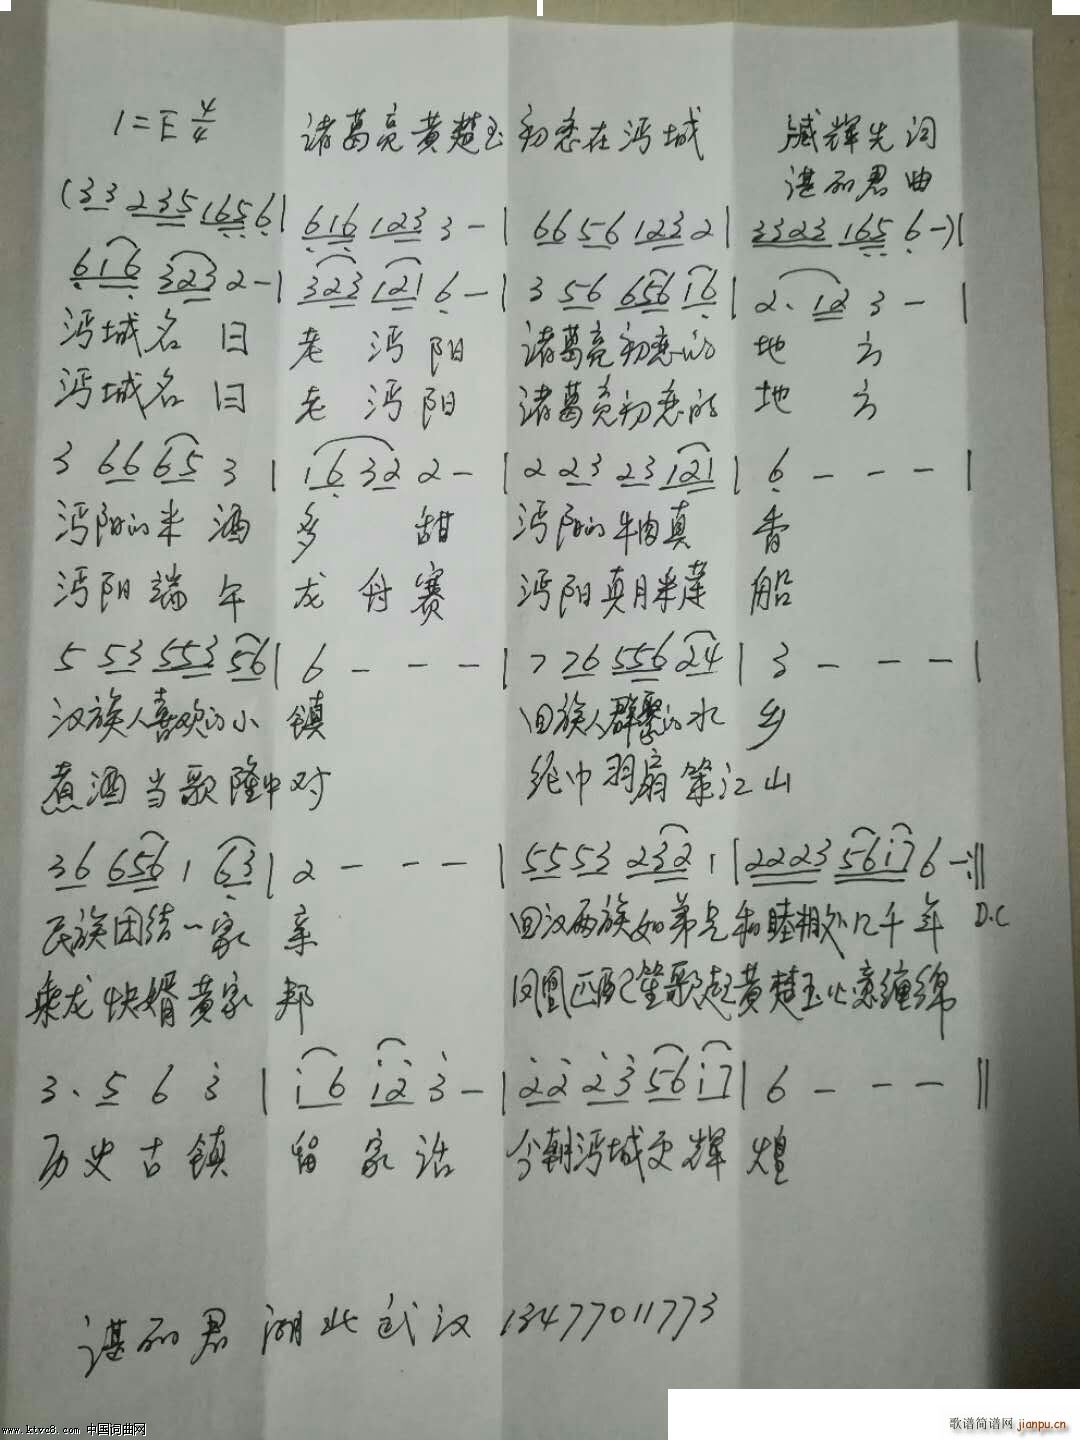 1=E 4/4 诸葛亮黄楚玉初恋在沔城 臧辉先词
谌丽君曲
(33 235 1656| 616 123 3 -| 66 56 123 2| 3323 165 6 -)|
616 323 2 -| 323 121 6 -| 3 56 656 16| 2· 12 3 - |
沔城名曰 老沔阳 诸葛亮初恋的 地方
沔城名曰 老沔阳 诸葛亮初恋的 地方
3 66 65 3 | 16 32 2 -| 2 23 23 121| 6 - - - |
沔阳的米酒 多甜 沔阳的牛肉真 香
沔阳端午 龙舟赛 沔阳真月米莲 船
5 53 553 56| 6 - - -| 7 76 556 24| 3 - - - |
汉族人喜欢的小 镇 回族人群聚的水 乡
煮酒当歌隆中对 纶巾羽扇策江山
36 656 1 63| 2 - - -| 5553 232 1|2223 5617 6 -:‖
民族团结一家 亲 回汉两族如弟兄和睦相处几千年 D.C
乘龙快婿黄家 邦 凤凰匹配笙歌起黄楚玉火恋缠绵
3· 5 6 3 | 1 6 12 3 -| 22 23 56 17| 6 - - - ‖
历史古镇 留家话 今朝沔城更辉 煌
谌丽君 湖北武汉 13477011773
www.ktvc8.com 中国词曲网
歌谱简谱网 jianpu.cn